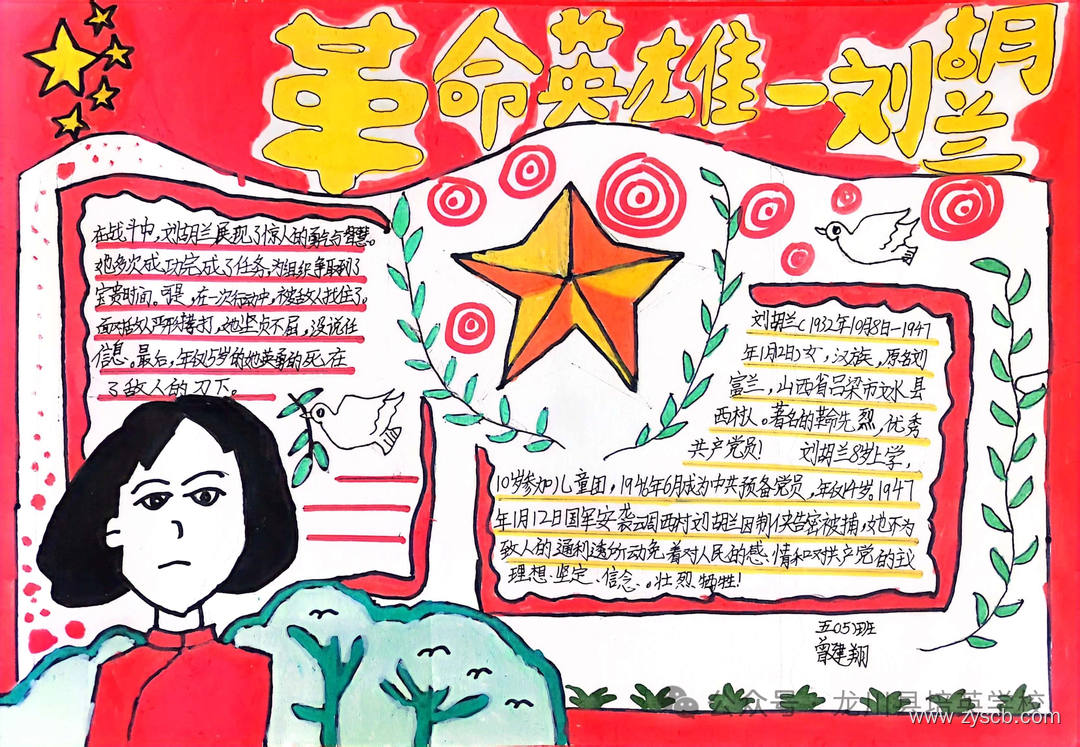 革命英雄—刘胡兰
在战斗中,刘胡兰展现了惊人的勇气与智慧。
她多次成功完成了任务,为组织争取到了
宝贵时间。可是,在一次行动中,被敌人抓住了。
面对敌人严刑拷打,她坚贞不屈,没说任
信息。最后,年仅15岁的她英勇的死在
了敌人的刃下。
刘胡兰(1932年10月8日—1947
年1月12日)女,汉族,原名刘
富兰,山西省吕梁市文水县
西村人。著名的革命先烈,优秀
共产党员! 刘胡兰8岁上学,
10岁参加儿童团,1946年6月成为中共预备党员,年仅14岁,1947
年1月12日国军突袭云周西村刘胡兰因制伕告密被捕,她不为
敌人的逼利诱所动免着对人民的感情和对共产党的主
理想、坚定、信念。壮烈牺牲!
五(5)班
曾建翔
公众号 · 龙川县培英学校
www.zyscb.com